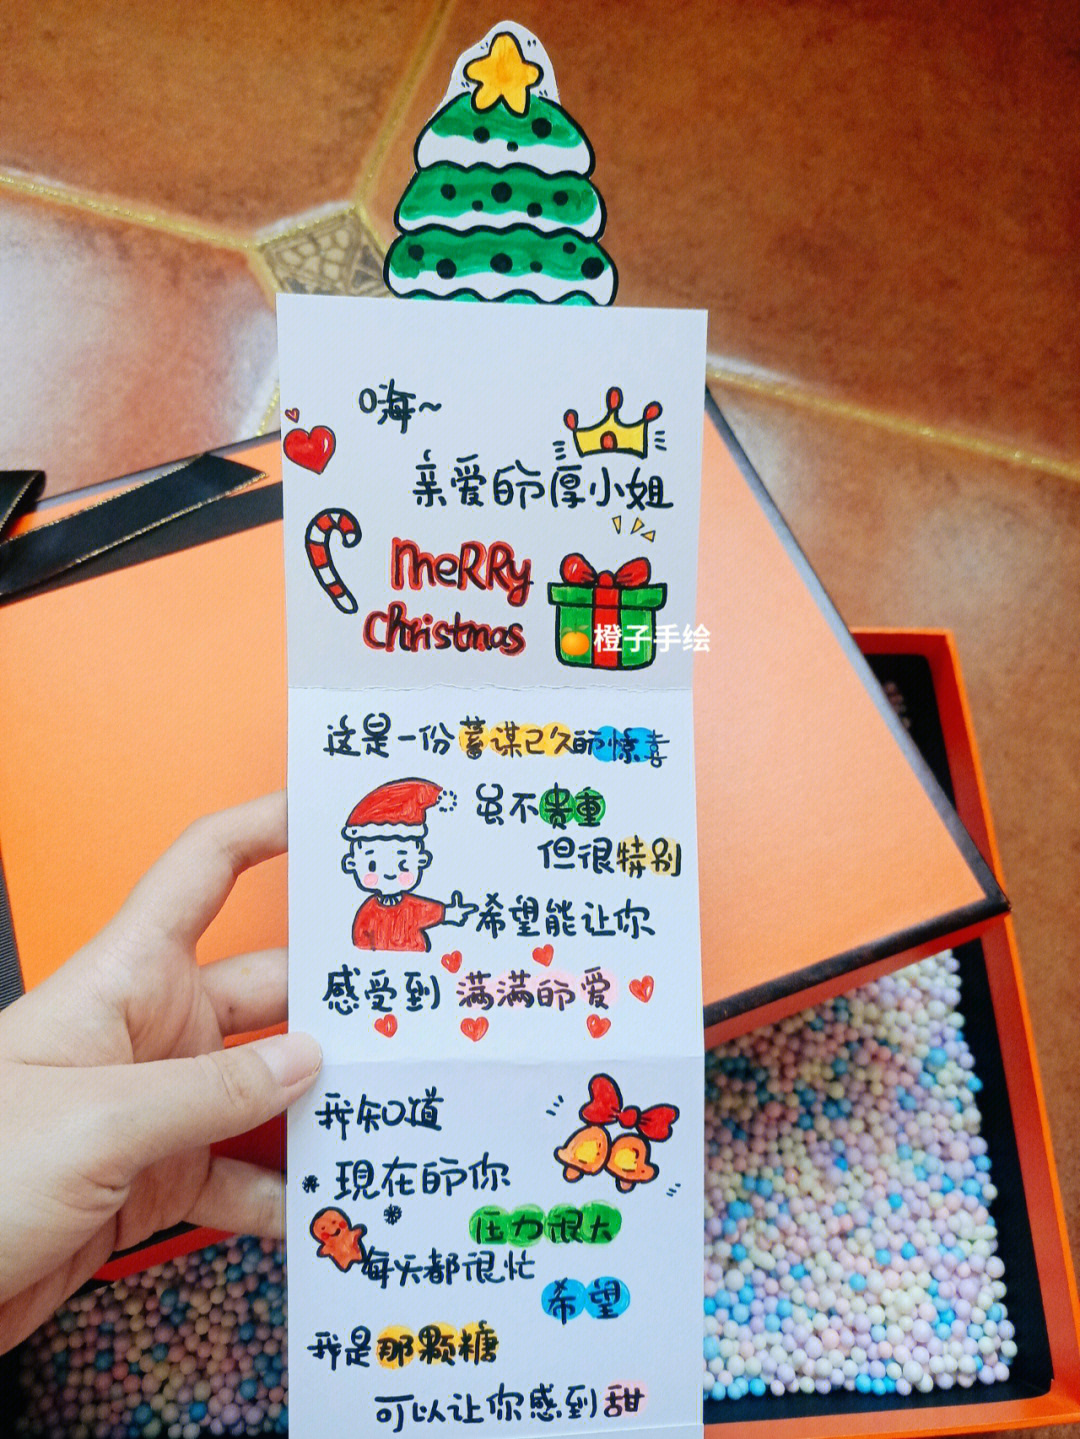 嗨~
亲爱的厚小姐
MeRRy
Christmas
🍊橙子手绘
这是一份蓄谋已久的惊喜
虽不贵重
但很特别
希望能让你
感受到 满满的爱
我知道
現在的你
压力很大
每天都很忙
希望
我是那颗糖
可以让你感到甜